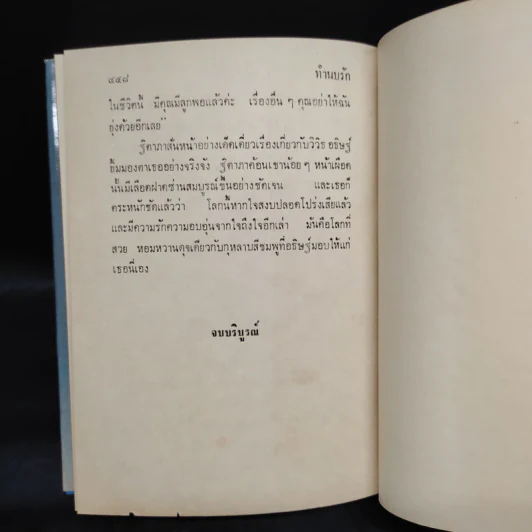 ๔๕๘
ทำนบรัก
ในชีวิตนี้ มีคุณมีลูกพอแล้วค่ะ เรื่องอื่น ๆ คุณอย่าให้ฉัน
ยุ่งด้วยอีกเลย”
ฐิตาภาสั่นหน้าอย่างเด็ดเดี่ยวเรื่องเกี่ยวกับวิวิธ อธิษฐ์
ยิ้มมองตาเธออย่างจริงจัง ฐิตาภาค้อนเขาน้อย ๆ หน้าเผือด
นั้นมีเลือดฝาดซ่านสมบูรณ์ขึ้นอย่างชัดเจน และเธอก็
ตระหนักชัดแล้วว่า โลกนี้หากใจสงบปลอดโปร่งเสียแล้ว
และมีความรักความอบอุ่นจากใจถึงใจอีกเล่า มันคือโลกที่
สวย หอมหวานดุจเดียวกับกุหลาบสีชมพูที่อธิษฐ์มอบให้แก่
เธอนี่เอง
จบบริบูรณ์